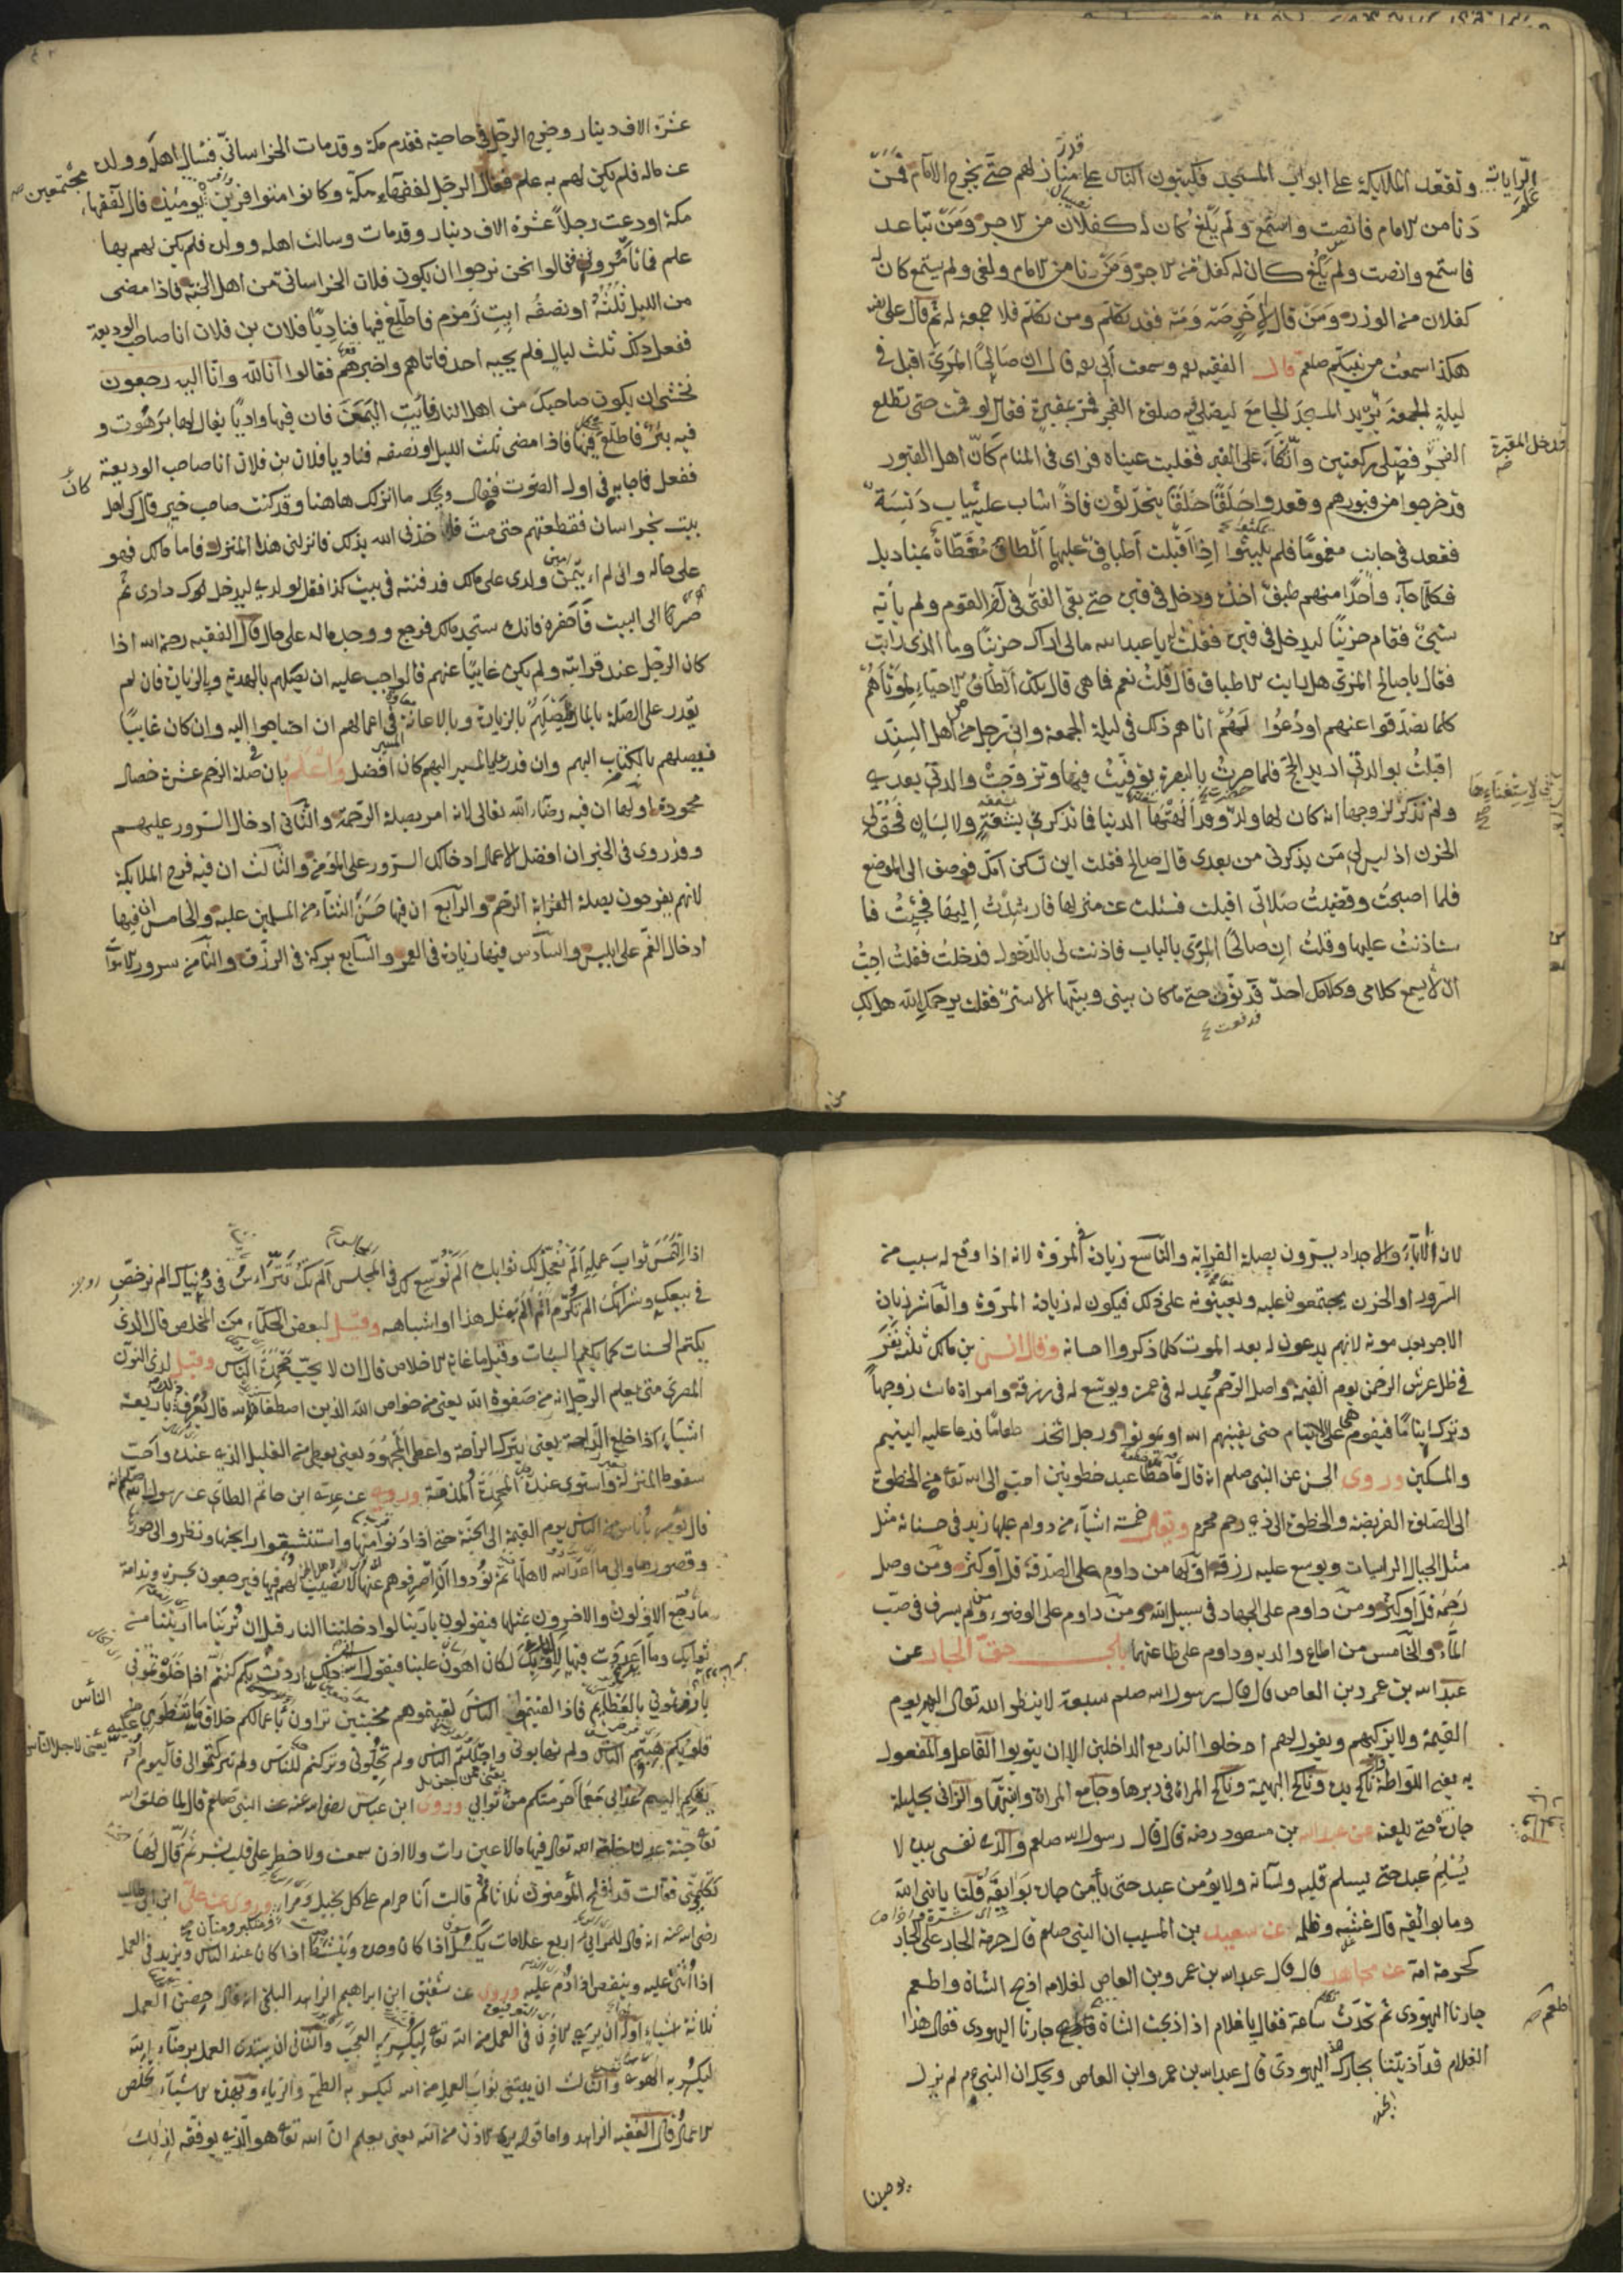 الرايات وتقعد الملائكة على ابواب المسجد فيكتبون الناس على قدر منازلهم حتى يخرج الامام فمن
دنا من الامام فانصت واستمع ولم يلغ كان له كفلان من الاجر ومن تباعد
فاستمع وانصت ولم يلغ كان له كفل من الاجر ومن دنا من الامام ولغى ولم يستمع كان له
كفلان من الوزر ومن قال لاخر صه ومه فقد تكلم ومن تكلم فلا جمعة له ثم قال على
هكذا سمعت من نبيكم صلعم قال الفقيه ره وسمعت ابي ره قال ان صالحا المري اقبل في
ليلة الجمعة يريد المسجد الجامع ليصلي صلوة الفجر فمر بمقبرة فقال لو قمت حتى تطلع
الفجر فدخل المقبرة فصلى ركعتين واتكأ على القبر فغلبت عيناه فراى في المنام كان اهل القبور
قد خرجوا من قبورهم وقعدوا حلقا حلقا يتحدثون فاذا شاب عليه ثياب دنسة
فقعد في جانب مغموما فلم يلبثوا اذا اقبلت اطباق عليها الطاف مغطاة بمناديل
فكلما جاء واحدا منهم طبق اخذه ودخل في قبره حتى بقي الفتى في آخر القوم ولم يأته
شيء فقام حزينا ليدخل في قبره فقلت له يا عبد الله ما لي اراك حزينا وما الذي رايت
فقال يا صالح المري هل رايت الاطباق قال قلت نعم فما هي قال تلك الطاف الاحياء لموتاهم
كلما تصدقوا عنهم او دعوا لهم اتاهم ذلك في ليلة الجمعة واني رجل من اهل السند
اقبلت بوالدتي اريد الحج فلما صرت بالبصرة توفيت فيها وتزوجت والدتي بعدي
ولم تذكر لزوجها انه كان لها ولد وقد الهتها الدنيا فما تذكرني بشفة ولا لسان فحق لي
الحزن اذ ليس لي من يذكرني من بعدي قال صالح فقلت اين تسكن امك فوصف الى الموضع
فلما اصبحت وقضيت صلاتي اقبلت فسئلت عن منزلها فارشدت اليها فجئت فا
ستاذنت عليها وقلت ان صالحا المري بالباب فاذنت لي بالدخول فدخلت فقلت احب
ان لا يسمع كلامي وكلامك احد قدنوت حتى ما كان بيني وبينها الا ستر فقلت يرحمك الله هل لك
عشرة الاف دينار وخرج الرجل في حاجته فقدم مكة وقد مات الخراساني فسال اهله وولده
عن ماله فلم يكن لهم به علم فقال الرجل لفقهاء مكة وكانوا متوافرين يومئذ مجتمعين قال لفقهاء
مكة اودعت رجلا عشرة الاف دينار وقد مات وسالت اهله وولده فلم يكن لهم بها
علم فما تأمروني فقالوا نحن نرجوا ان يكون فلان الخراساني من اهل الجنة فاذا مضى
من الليل ثلثه او نصفه ايت زمزم فاطلع فيها فناد يا فلان بن فلان انا صاحب الوديعة
ففعل ذلك ثلث ليال فلم يجبه احد فاتاهم واخبرهم فقالوا انا لله وانا اليه راجعون
نخشى ان يكون صاحبك من اهل النار فايت اليمن فان فيها واديا يقال لها برهوت و
فيه بئر فاطلع فيها فاذا مضى ثلث الليل او نصفه فناد يا فلان بن فلان انا صاحب الوديعة
ففعل فاجابه في اول الصوت فقال ويحك ما انزلك هاهنا وقد كنت صاحب خير قال كان لي اهل
بيت بخراسان فقطعتهم حتى مت فاخذني الله بذلك فانزلني هذا المنزل فاما مالك فهو
على حاله واني لم ايتمن ولدي على مالك قد دفنته في بيت كذا فقل لولدي ليدخلك دارى ثم
صر الى البيت فاحفره فانك ستجد مالك فرجع ووجد ماله على حاله قال الفقيه رحمه الله اذا
كان الرجل عند قرابته ولم يكن غايبا عنهم فالواجب عليه ان يصلهم بالهدية وبالزيارة فان لم
يقدر على الصلة بالمال فيصلهم بالزيارة وبالاعانة في اعمالهم ان احتاجوا اليه وان كان غايبا
فيصلهم بالكتاب اليهم وان قدر على المسير اليهم كان افضل واعلم بان في صلة الرحم عشرة خصال
محمودة اولها ان فيه رضاء الله تعالى لانه امر بصلة الرحمة والثاني ادخال السرور عليهم
وقد روى في الخبر ان افضل الاعمال ادخالك السرور على المؤمن والثالث ان فيه فرح الملايكة
لانهم يفرحون بصلة القرابة الرحم والرابع ان فيها حسن الثناء من المسلمين عليه والخامس ان فيها
ادخال الغم على ابليس والسادس فيها زيادة في العمر والسابع بركة في الرزق والثامن سرور الاموات
لان الاباء والاجداد يسرون بصلة القرابة والتاسع زيادة في المروة لانه اذا وقع له سبب من
السرور او الحزن يجتمعون عليه ويعينونه على ذلك فيكون له زيادة المروة والعاشر زيادة
الاجر بعد موته لانهم يدعون له بعد الموت كلما ذكروا احسانه وقال انس بن مالك ثلثة نفر
في ظل عرش الرحمن يوم القيمة واصل الرحم يمد له في عمره ويوسع له في رزقه وامراة مات زوجها
وترك ايتاما فيقوم هي على الايتام حتى يغنيهم الله او يموتوا ورجل اتخذ طعاما فدعا عليه اليتيم
والمسكين وروى الحسن عن النبي صلعم انه قال ما خطا عبد خطوتين احب الى الله تعالى من الخطوة
الى الصلوة الفريضة والخطوة الى ذي رحم محرم ويقال خمسة اشياء من دوام عليها زيد في حسناته مثل
مثل الجبال الراسيات ويوسع عليه رزقه اولها من داوم على الصدقة قل او كثر ومن وصل
رحمه قل او كثر ومن داوم على الجهاد في سبيل الله ومن داوم على الوضوء ولم يسرف في صب
الماء والخامس من اطاع والديه وداوم على طاعتهما باب حق الجار عن
عبد الله بن عمرو بن العاص قال قال رسول الله صلعم سبعة لا ينظر الله تعالى اليهم يوم
القيمة ولا يزكيهم ويقول لهم ادخلوا النار مع الداخلين الا ان يتوبوا الفاعل والمفعول
به يعني اللواطة وناكح يده وناكح البهيمة وناكح المراة في دبرها وجامع المراة وابنتها والزاني بحليلة
جاره حتى يلعنه عن عبد الله بن مسعود رضه قال قال رسول الله صلعم والذي نفسي بيده لا
يسلم عبد حتى يسلم قلبه ولسانه ولا يؤمن عبد حتى يأمن جاره بوايقه قلنا يا نبي الله
وما بوائقه قال غشه وظلمه عن سعيد بن المسيب ان النبي صلعم قال حرمة الجار على الجار
كحرمة امه عن مجاهد قال قال عبد الله بن عمر وبن العاص لغلامه اذبح الشاة واطعم
جارنا اليهودي ثم تحدث ساعة فقال يا غلام اذا ذبحت الشاة فاطعم جارنا اليهودى فقال هذا
الغلام قد آذيتنا بجارك اليهودى قال عبد الله بن عمر وابن العاص ويحك ان النبي عم لم يزل
يوصينا
اذا التمس ثواب عمله الم نعجل لك ثوابك الم نوسع لك في المجلس الم تك تراس في دنياك الم نرخص
في بيعك وشرائك الم تكرم الم الم مثل هذا او اشباهه وقيل لبعض الحكماء من المخلص قال الذى
يكتم الحسنات كما يكتم السيئات وقيل ما غاية الاخلاص قال ان لا يحب محمدة الناس وقيل لذي النون
المصري متى يعلم الرجل انه من صفوة الله يعني من خواص الله الذين اصطفاهم الله قال يعرف ذلك باربعة
اشياء اذا خلع الراحة يعني يترك الراحة واعطى المجهود يعني يعطي من القليل الذي عنده واحب
سقوط المنزلة واستوى عنده المحمدة والمذمة وروي عن عدي ابن حاتم الطائي عن رسول الله صلعم انه
قال يؤمر بأناس من الناس يوم القيمة الى الجنة حتى اذا دنوا منها واستنشقوا رايحتها ونظروا الى حورها
وقصورها والى ما اعد الله لاهلها ثم نودوا ان اصرفوهم عنها لا نصيب لهم فيها فيرجعون بحسرة وندامة
ما رجع الاولون والاخرون بمثلها فيقولون يا ربنا لو ادخلتنا النار قبل ان ترينا ما اريتنا من
ثوابك وما اعددت فيها لاوليائك لكان اهون علينا فيقول الله ذلك اردت بكم كنتم اذا خلوتموني
بارزتموني بالعظايم فاذا لقيتم الناس لقيتموهم مخبتين تراون باعمالكم خلاف ما تنطوي عليه
قلوبكم هبتم الناس ولم تهابوني واجللتم الناس ولم تجلوني وتركتم للناس ولم تتركوا لي فاليوم
اذيقكم اليم عذابي مع ما حرمتكم من ثوابي وروى ابن عباس رضي الله عنه عن النبي صلعم قال لما خلق الله
تعالى جنة عدن خلق الله تعالى فيها ما لا عين رات ولا اذن سمعت ولا خطر على قلب بشر ثم قال لها
تكلمي فقالت قد افلح المؤمنون ثلاثا ثم قالت انا حرام على كل بخيل ومراء وروى عن علي ابن ابي طالب
رضى الله عنه انه قال للمرائي اربع علامات يكسل اذا كان وحده وينشط اذا كان عند الناس ويزيد في العمل
اذا اثنى عليه وينقص اذا ذم عليه وروى عن شقيق ابن ابراهيم الزاهد البلخي انه قال حصن العمل
ثلاثة اشياء اوله ان يرى الاذن في العمل من الله تعالى ليكسر به العجب والثاني ان يبتدى العمل برضاء الله
ليكسر به الهوى والثالث ان يبتغي ثواب العمل من الله ليكسر به الطمع والرياء وبهذه الاشياء تخلص
الاعمال قال الفقيه الزاهد واما قوله يرى الاذن من الله يعني يعلم ان الله تعالى هو الذي يوفقه لذلك